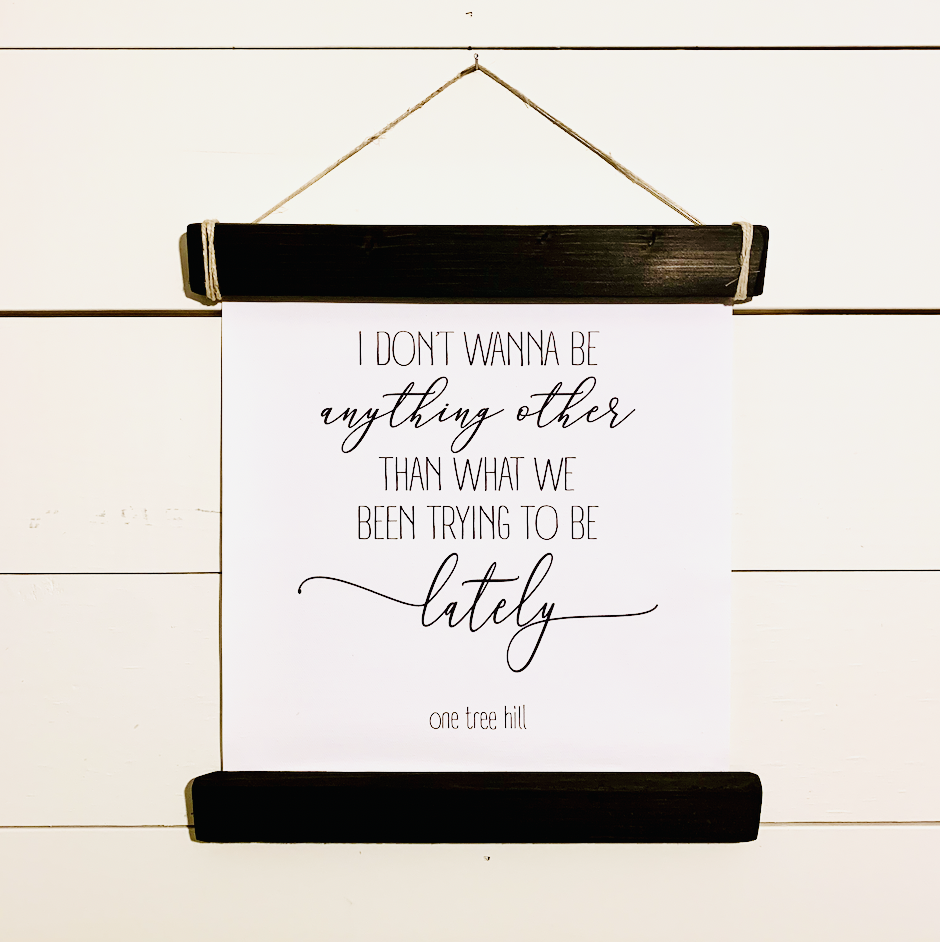 I DON'T WANNA BE
anything other
THAN WHAT WE
BEEN TRYING TO BE
lately
one tree hill